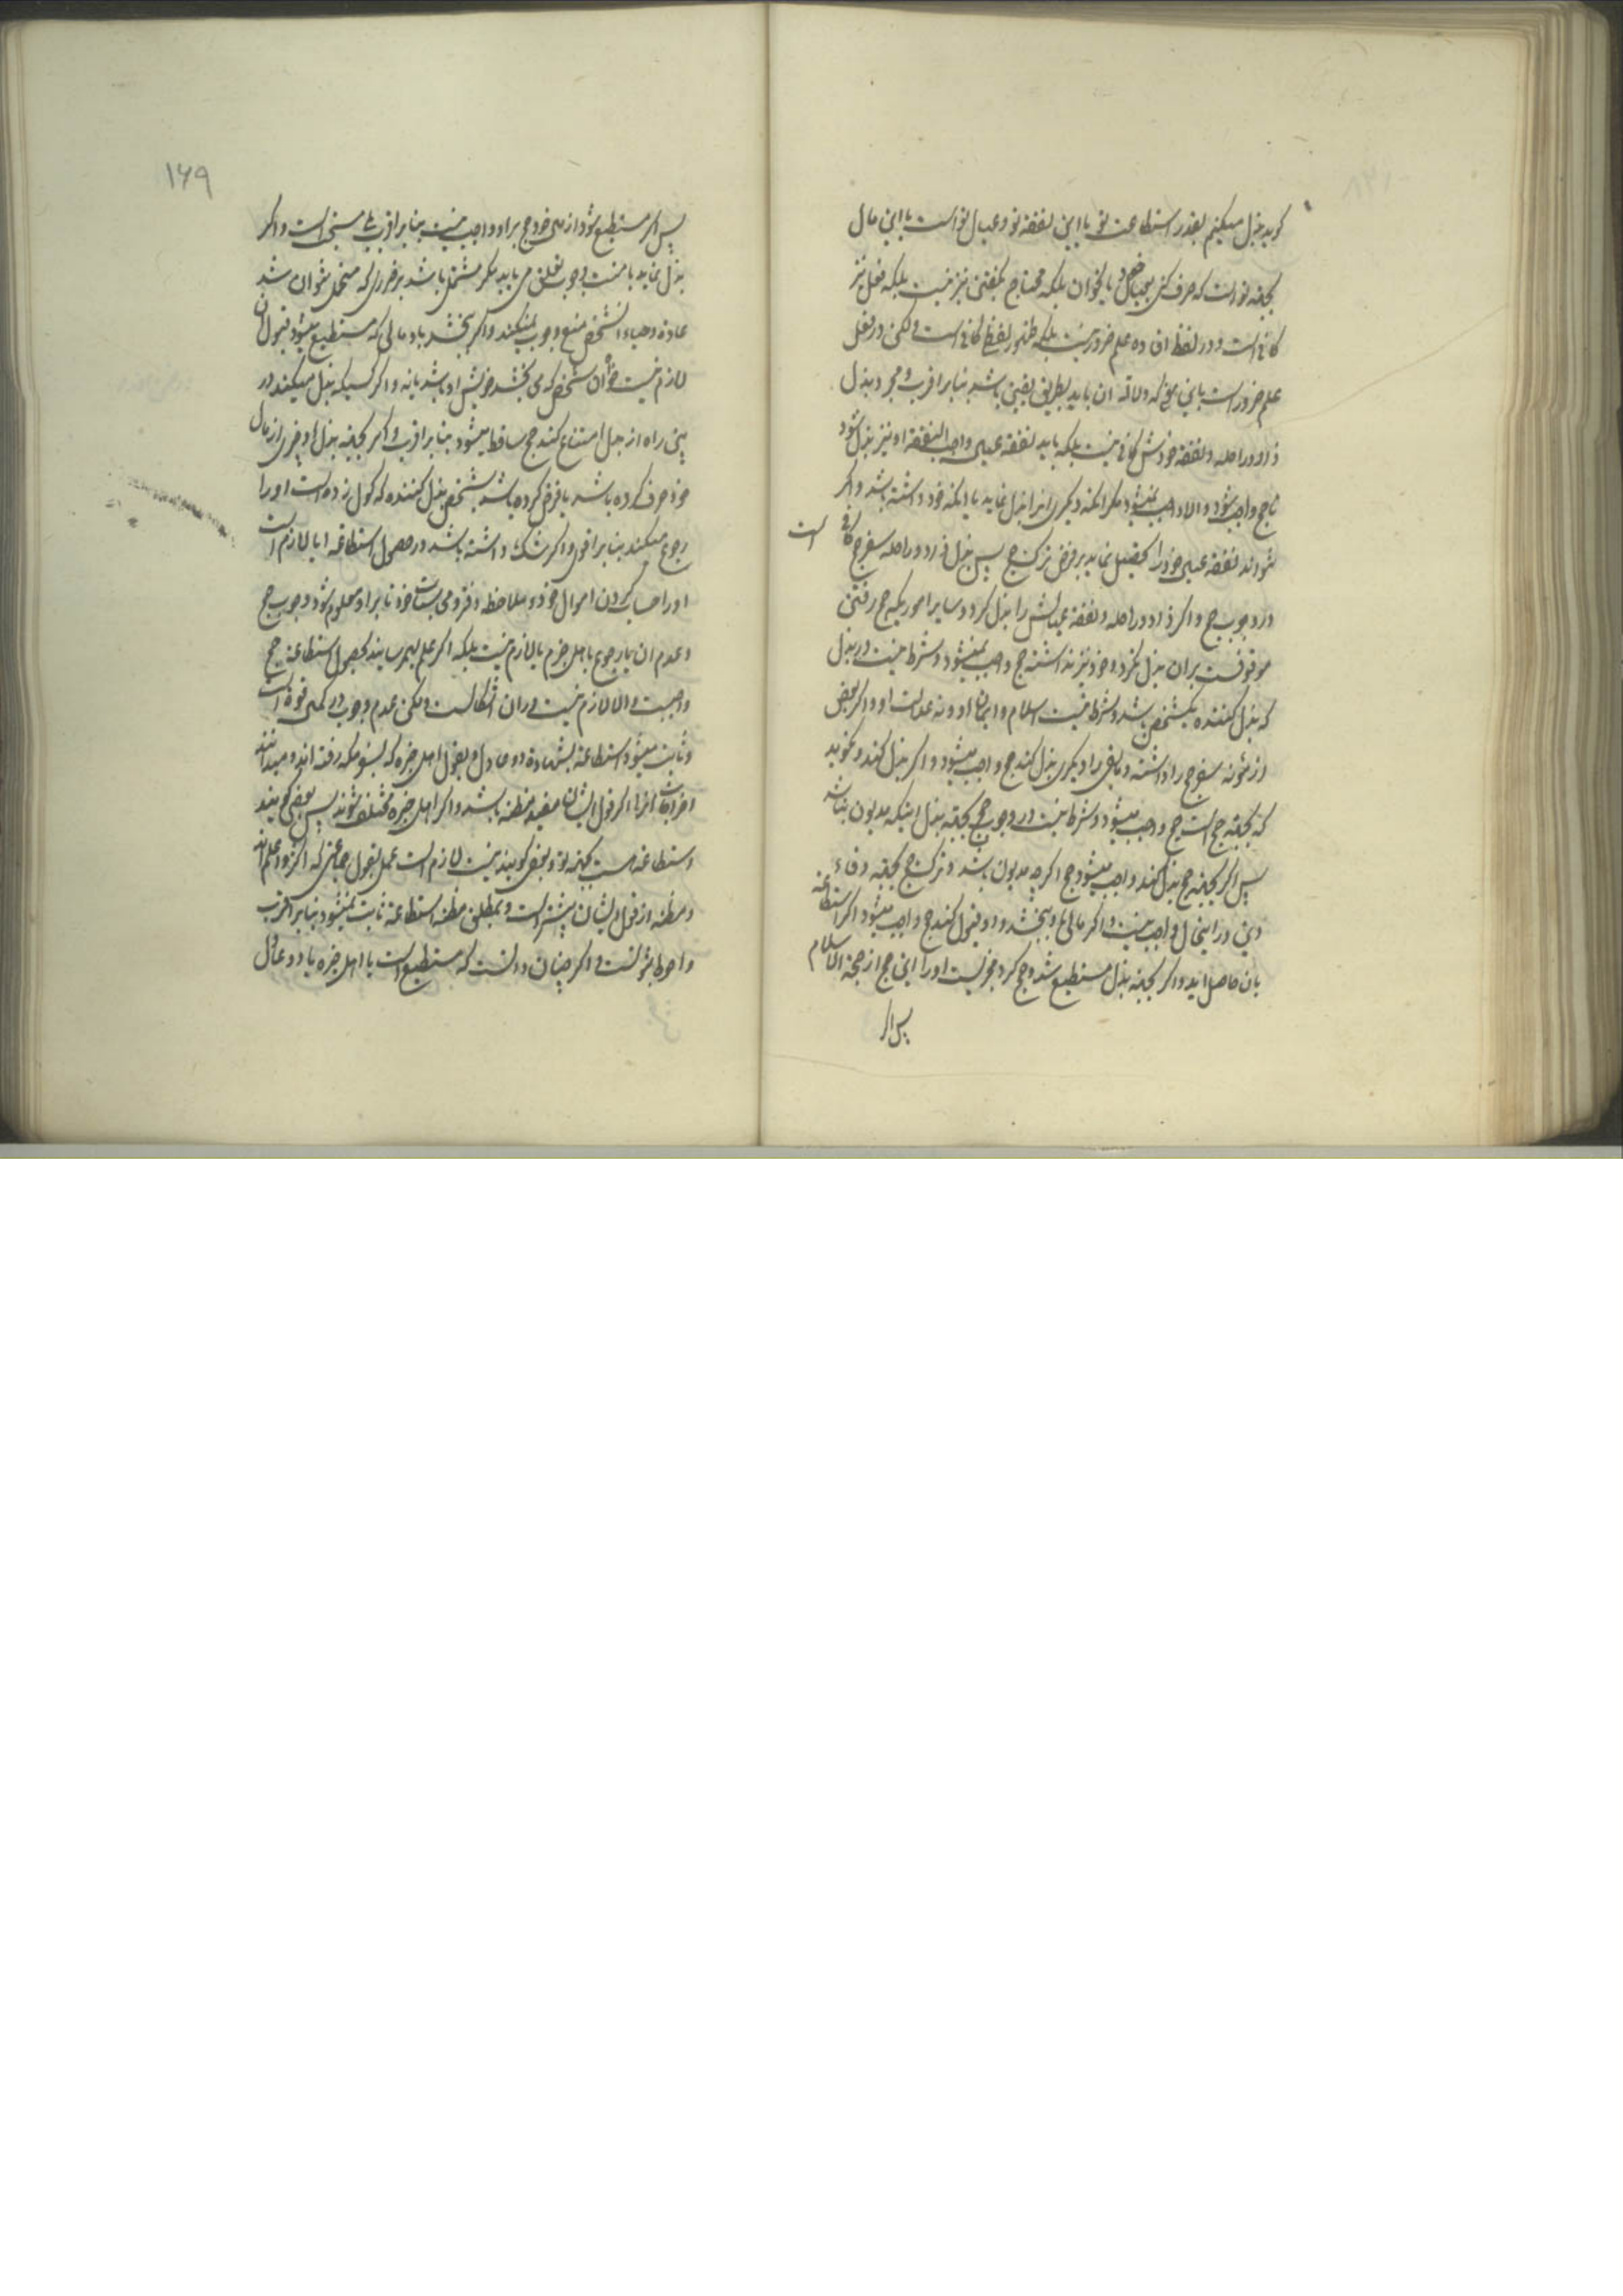 کوید بذل میکنم بقدر استطاعت تو یا این نفقه تو و عیال تو است یا این مال
بجهة تو است که صرف کنی بعیال خود یا نحو ان بلکه محتاج بگفتن نیز نیست بلکه فعل نیز
کافی است و در لفظ افاده علم ضرور نیست بلکه ظهور لفظ کافی است ولکن در فعل
علم ضرور است باین معنی که دلالة ان باید بطریق یقین باشد بنا بر اقرب و مجرد بذل
زاد و راحله و نفقه خودش کافی نیست بلکه باید نفقه عیال واجب النفقه او نیز بذل شود
تا حج واجب شود و الا واجب نمیشود مکر انکه دیکری انرا بذل نماید یا انکه خود داشته باشد و اکر
نتواند نفقه عیال خود را تحصیل نماید بر فرض ترک حج پس بذل زاد و راحله سفر حج کافی است
در وجوب حج و اکر زاد و راحله و نفقه عیالش را بذل کرد و سایر اموریکه حج رفتن
موقوفست بران بذل نکرد و خود نیز نداشته حج واجب نمیشود و شرط نیست در بذل
که بذل کننده یکشخص باشد و شرط نیست اسلام و ایمان او و نه عدالت او و اکر بعض
از مؤنه سفر حج را داشته و باقی را دیکری بذل کند حج واجب میشود و اکر بذل کند و نکوید
که بجهة حج است حج واجب میشود و شرط نیست در وجوب حج بجهة بذل اینکه مدیون نباشد
پس اکر بجهة حج بذل کند واجب میشود حج اکرچه مدیون باشد و ترک حج بجهة وفاء
دین در اینحال واجب نیست و اکر مالی باو ببخشد و او قبول کند حج واجب میشود اکر استطاعة
بان حاصل اید و اکر بجهة بذل مستطیع شد و حج کرد مجزیست او را این حج از حجة الاسلام
پس اکر
۱۶۹
پس اکر مستطیع شود از خود حج بر او واجب نیست بنا بر اقرب بلی مستحب است و اکر
بذل نماید با منت وجوب تعلق می یابد مکر مشتمل باشد بر ضرری که متحمل نتوان شد
عادة و حیاء انشخص منع وجوب نمیکند و اکر ببخشد باو مالی که مستطیع میشود قبول ان
لازم نیست خواه آن شخص که می بخشد خویش او باشد یا نه و اکر کسیکه بذل میکند در
بین راه از بذل امتناع کند حج ساقط میشود بنا بر اقرب و اکر بجهة بذل او چیزی از مال
خود صرف کرده باشد یا قرض کرده باشد بشخص بذل کننده که کول زده است او را
رجوع میکند بنا بر اقوی و اکر شک داشته باشد در حصول استطاعة ایا لازم است
او را حساب کردن اموال خود و ملاحظه دفتر و حساب خود تا بر او معلوم شود وجوب حج
و عدم ان یا رجوع باهل خبره یا لازم نیست بلکه اکر علم بهم رسانید بحصول استطاعة حج
واجبست و الا لازم نیست در ان اشکالست ولکن عدم وجوب در کمال قوة است
و ثابت میشود استطاعة بشهادة دو عادل و بقول اهل خبره که بسفر مکه رفته اند و میدانند
اخراجات انرا اکر قول ایشان مفید مظنه باشد و اکر اهل خبره مختلف شوند پس بعضی کویند
استطاعة هست بجهة تو و بعضی کویند نیست لازم است عمل بقول جماعتی که اکثر و اعلم اند
و مظنه از قول ایشان بیشتر است و بمطلق مظنه استطاعة ثابت نمیشود بنا بر اقرب
و احوط ثبوتست و اکر چنان دانست که مستطیع است یا اهل خبره یا دو عادل